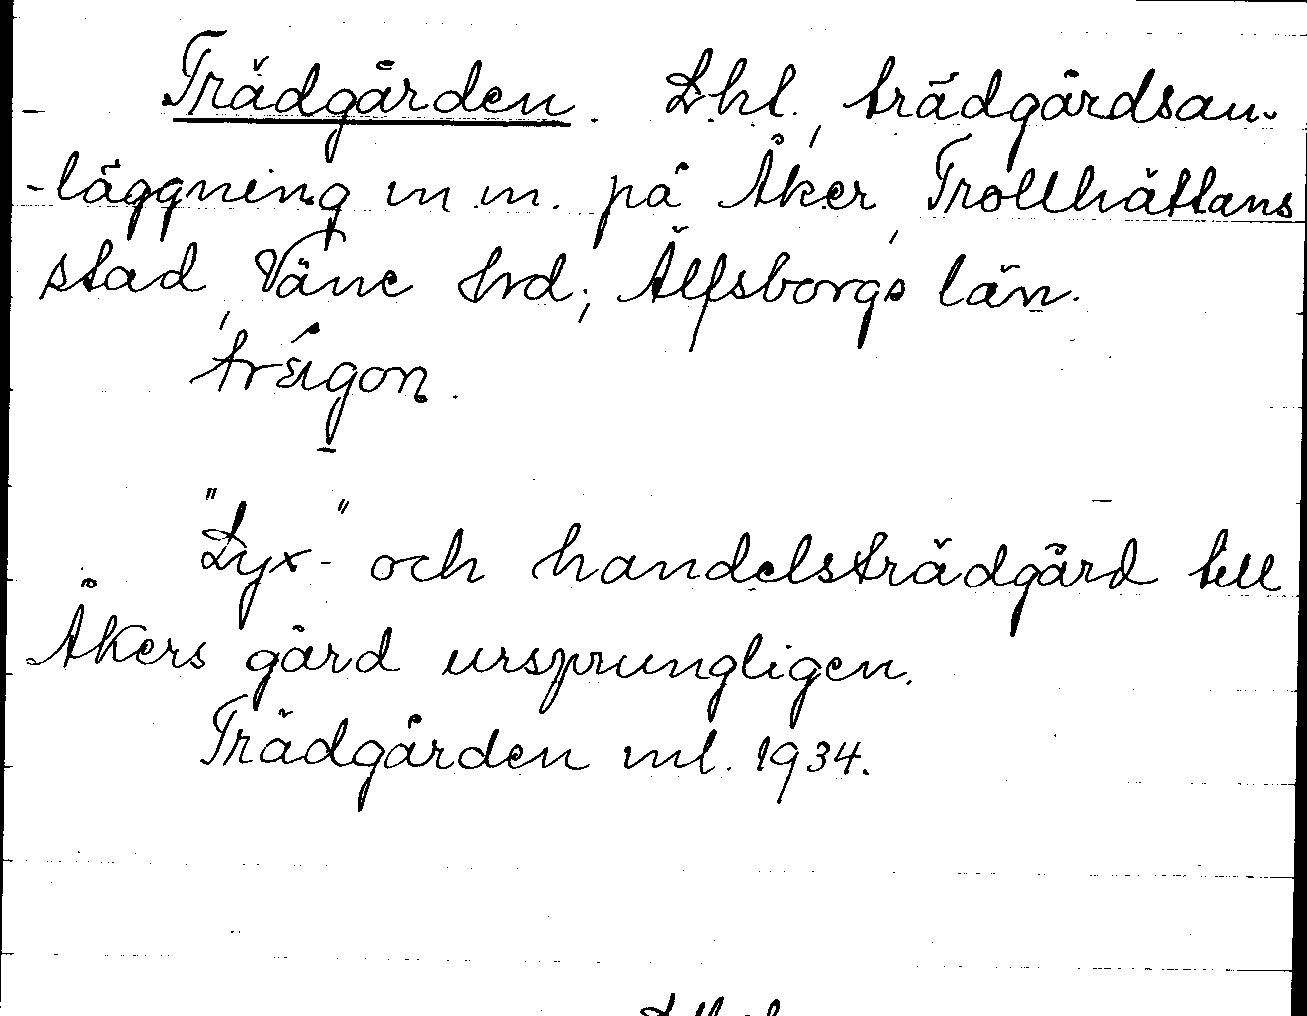 Trädgården. Lhl., trädgårdsan-
-läggning m.m. på Åker, Trollhättans
stad, Väne hrd; Älfsborgs län.
"Lyx-" och handelsträdgård till
Åkers gård ursprungligen.
Trädgården ml. 1934.